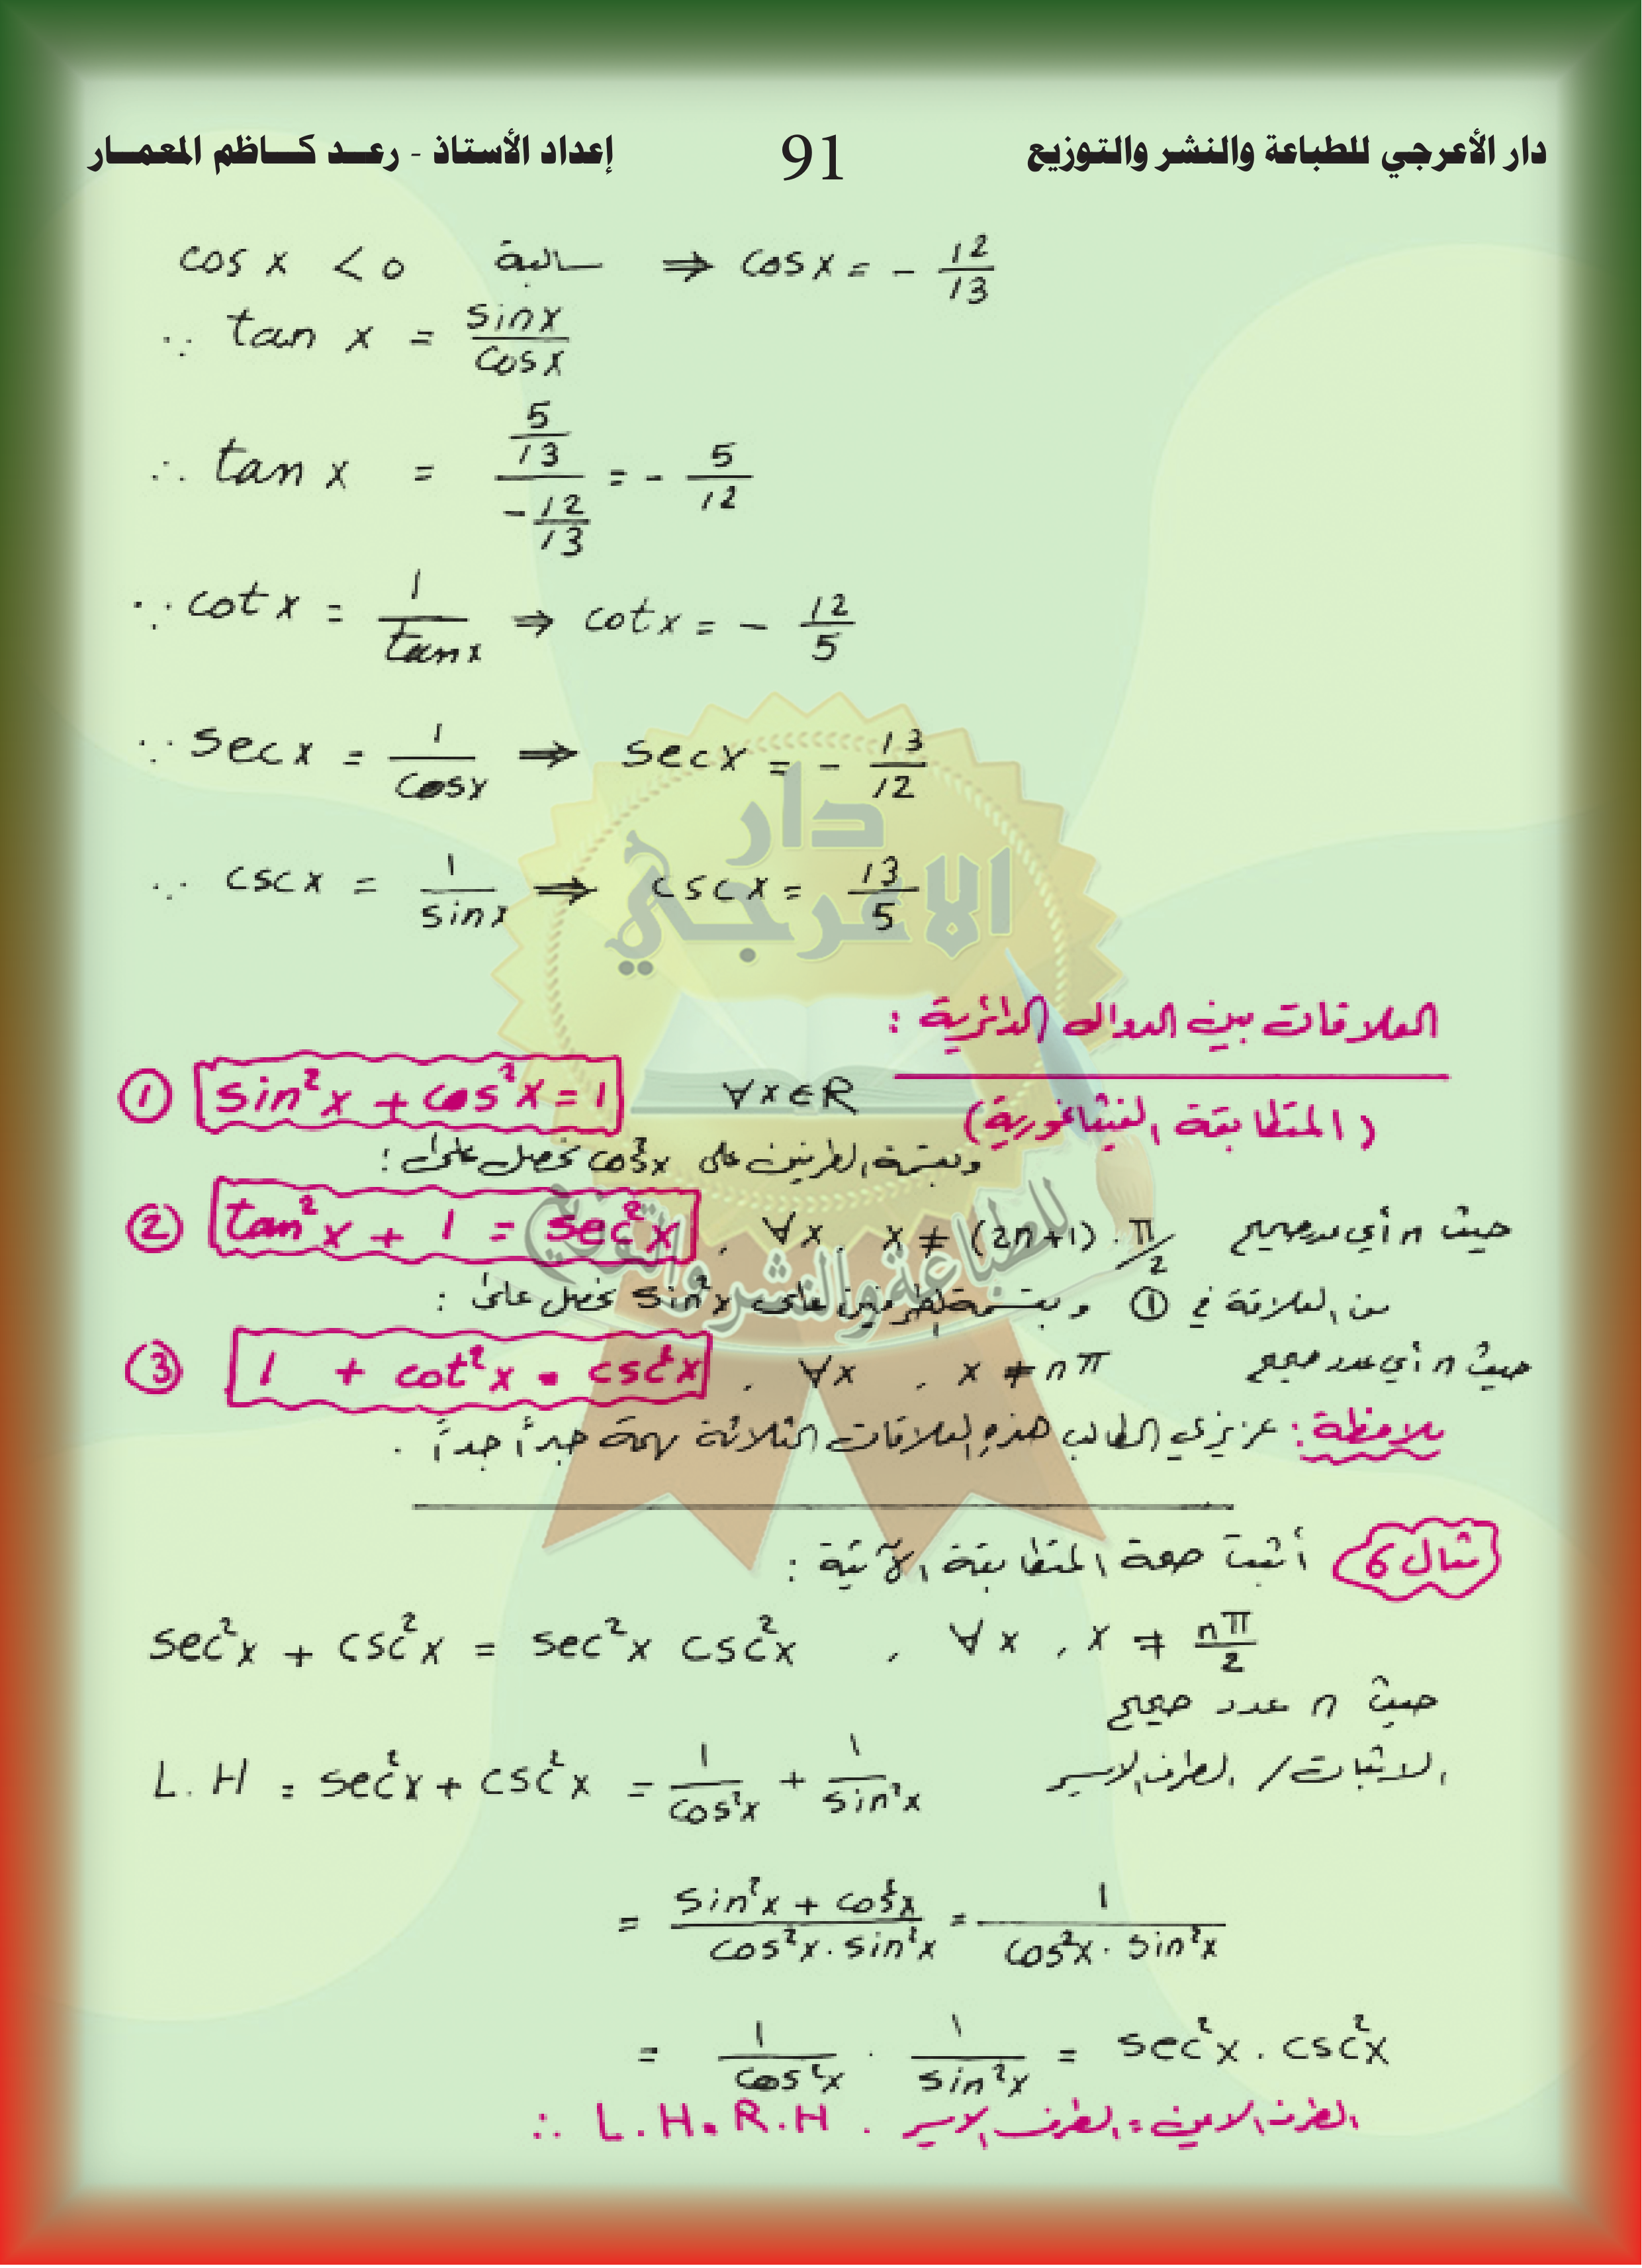 دار الأعرجي للطباعة والنشر والتوزيع 91 إعداد الأستاذ - رعـــد كـــاظم المعمـــار
cos x < 0 سالبة ⇒ cos x = - 12/13
∵ tan x = sin x / cos x
∴ tan x = (5/13) / (-12/13) = - 5/12
∵ cot x = 1/tan x ⇒ cot x = - 12/5
∵ sec x = 1/cos x ⇒ sec x = - 13/12
∵ csc x = 1/sin x ⇒ csc x = 13/5
دار
الاعرجي
للطباعة والنشر والتوزيع
العلاقات بين الدوال الدائرية :
① sin²x + cos²x = 1 ∀ x ∈ R (المتطابقة الفيثاغورية)
وبقسمة الطرفين على cos²x نحصل على :
② tan²x + 1 = sec²x , ∀x , x ≠ (2n+1) . π/2 حيث n أي عدد صحيح
من العلاقة في ① وبقسمة الطرفين على sin²x نحصل على :
③ 1 + cot²x = csc²x , ∀x , x ≠ nπ حيث n أي عدد صحيح
ملاحظة : عزيزي الطالب هذه العلاقات الثلاثة مهمة جداً جداً .
مثال 6 أثبت صحة المتطابقة الآتية :
sec²x + csc²x = sec²x csc²x , ∀ x , x ≠ nπ/2
حيث n عدد صحيح
الاثبات / الطرف الايسر L.H = sec²x + csc²x = 1/cos²x + 1/sin²x
= (sin²x + cos²x) / (cos²x . sin²x) = 1 / (cos²x . sin²x)
= 1/cos²x . 1/sin²x = sec²x . csc²x
∴ L.H = R.H . الطرف الايمن = الطرف الايسر